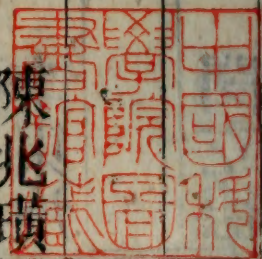 中國科
學院圖
書館藏
陳兆璜